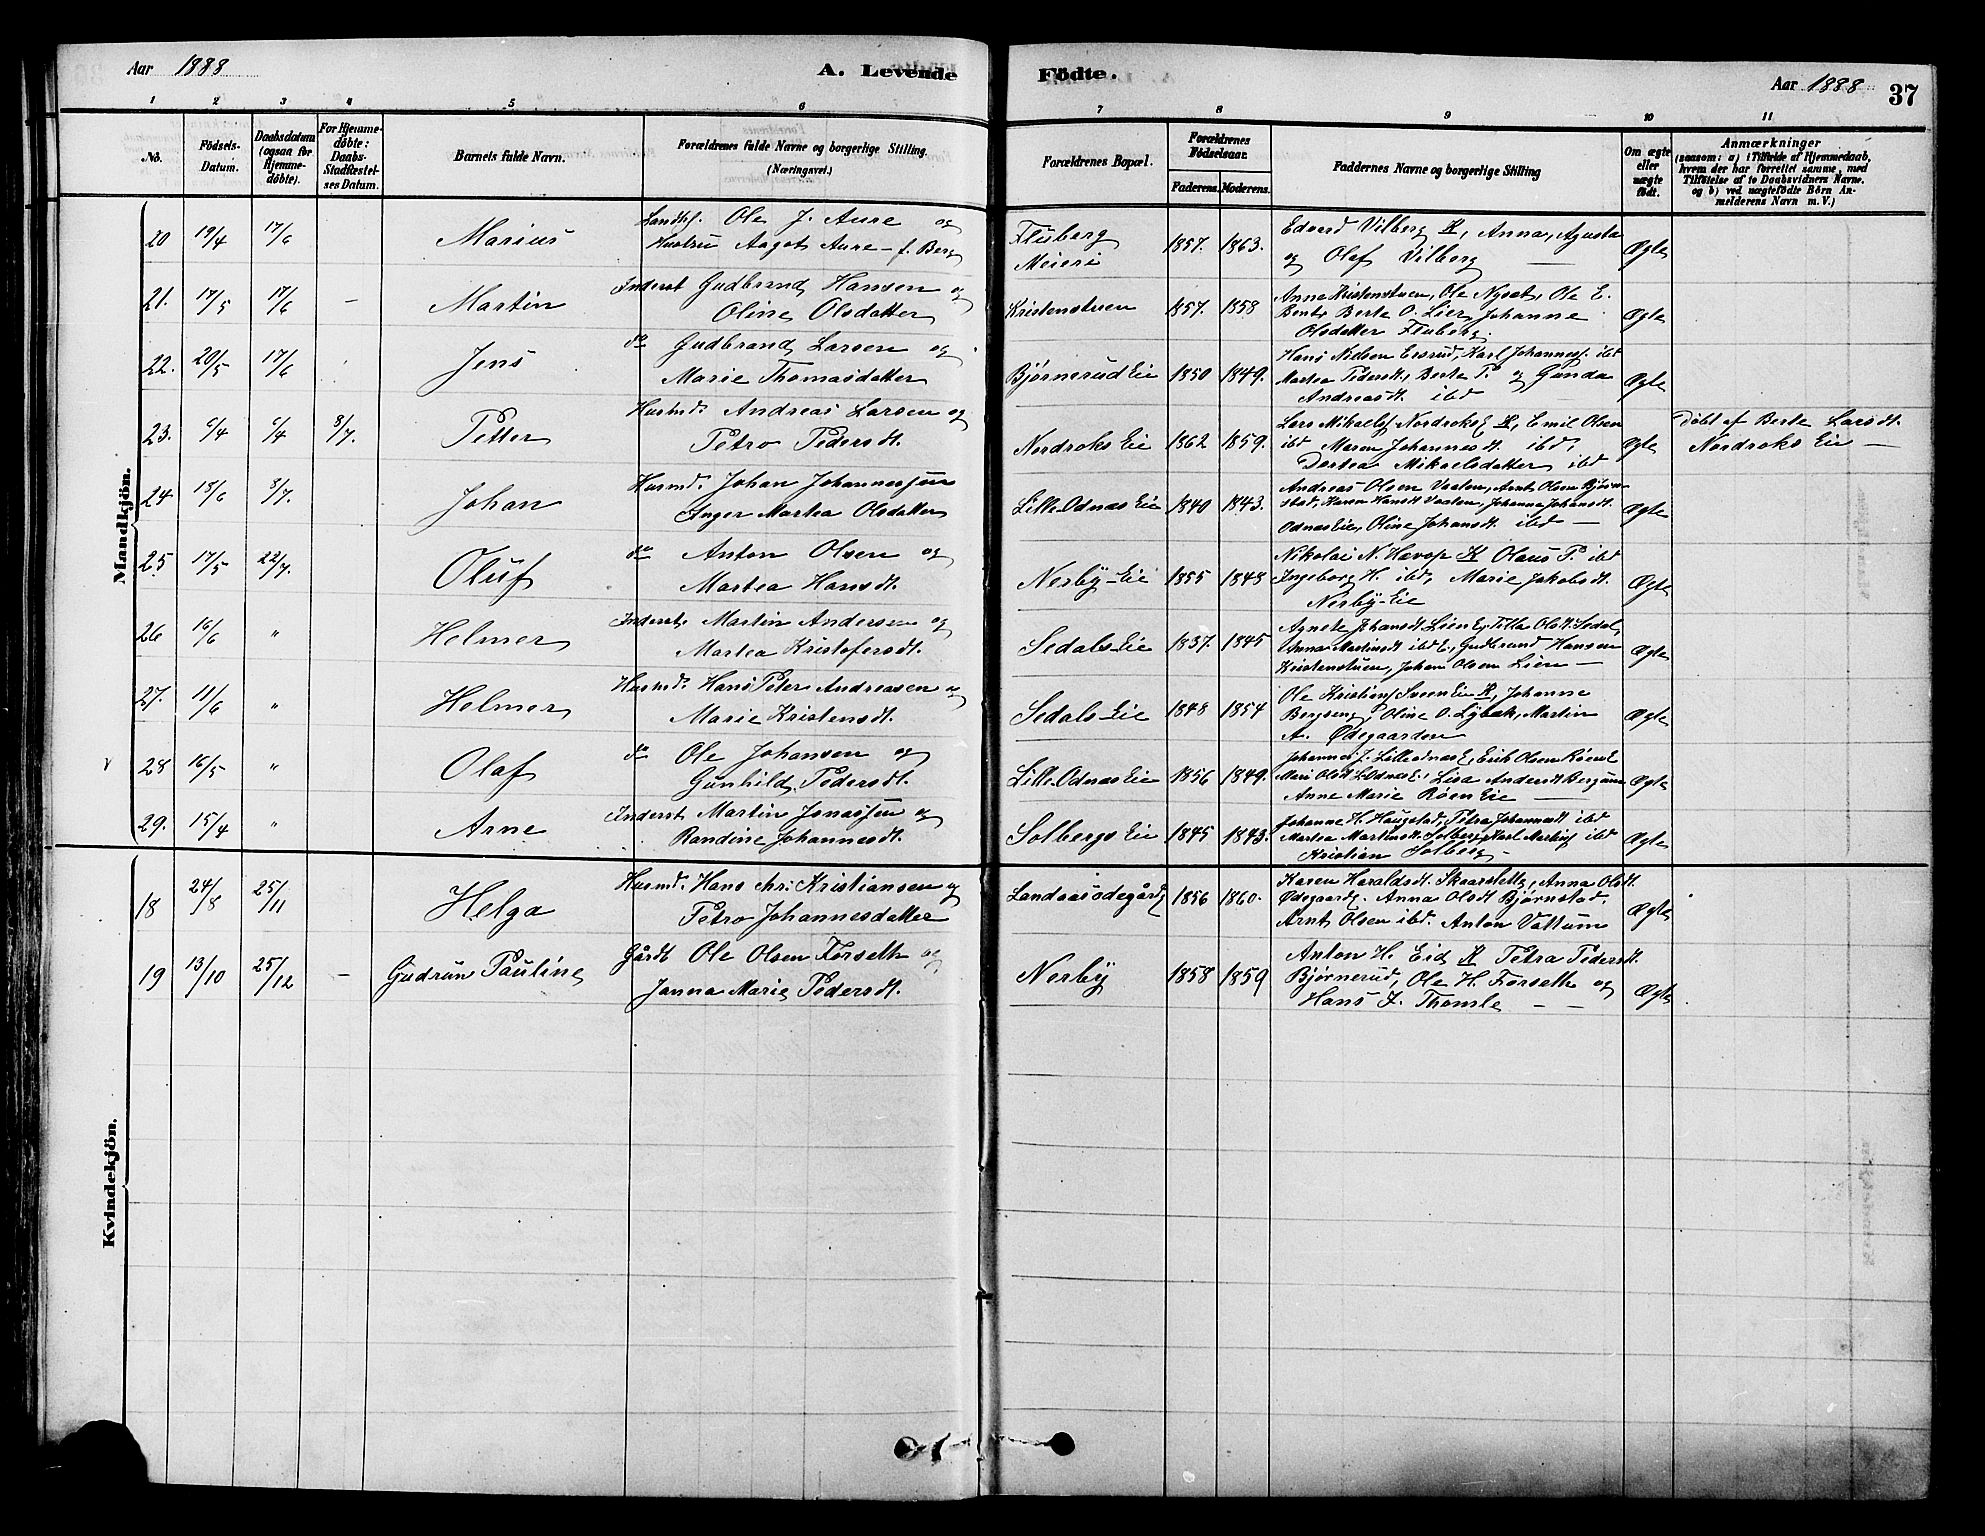 Aar 1888
A. Levende Födte.
Aar 1888
37
1 2 3 4 5 6 7 8 9 10 11
No.
Födsels-Datum.
Daabsdatum (ogsaa for Hjemmedöbte).
For Hjemmedöbte: Daabs-Stadfæstelses Datum.
Barnets fulde Navn.
Forældrenes fulde Navne og borgerlige Stilling. (Næringsvei.)
Forældrenes Bopæl.
Forældrenes Födselsaar.
Faderens. Moderens.
Faddernes Navne og borgerlige Stilling
Om ægte eller uægte födt.
Anmærkninger
(saasom: a) i Tilfælde af Hjemmedaab, hvem der har forrettet samme, med Tilföielse af to Daabsvidners Navne, og b) ved uægtefödte Börn Anmelderens Navn m. V.)
Mandkjön.
20 19/4 17/6 Marius
Ole J. Aure og
Hustru Aagot Aure f. Berg
Fluberg Meieri 1857. 1863.
Edvard Vilberg K, Anna, Agusta
og Olaf Vilberg
Ægte
21. 17/5 17/6 – Martin
Inderst Gudbrand Hansen og
Oline Olsdatter
Kristenstuen 1857. 1858
Anne Kristenstuen, Ole Nyset, Ole E.
Berte O. Lier, Johanne
Olsdatter Fluberg.
Ægte
22. 20/5 17/6 Jens
do Gudbrand Larsen og
Marie Thomasdatter
Bjørnerud Eie 1850 1849.
Hans Nielsen Ersrud, Karl Johannes. ibd
Martea Pedersdt, Berte P. og Gunda
Andreasdt ibd
Ægte
23. 6/4 6/4 8/7. Petter
Husmd. Andreas Larsen og
Petro Pedersdt.
Nordroks Eie 1862 1859.
Lars Mikaels. Nordroks E K, Emil Olsen
ibd Maren Johannesdt ibd,
Dortea Mikaelsdatter ibd
Ægte
Døbt af Berte Larsdt.
Nordroks Eie –
24 18/6 8/7. Johan
Husmd. Johan Johannessen
Inger Martea Olsdatter
Lille Odnæs Eie 1840 1843.
Andreas Olsen Vaalen, Arnt Olsen Bjørnstad, Karen Hansdt Vaalen, Johanna Johansdt.
Odnæs Eie, Oline Johansdt. ibd –
Ægte
25 17/5 22/7. Oluf
do Anton Olsen og
Martea Hansdt.
Nerby-Eie 1855 1848
Nikolai N. Havop K Olaus P. ibd
Ingeborg H. ibd, Marie Jakobsdt.
Nerby-Eie
Ægte
26 16/6 " Helmer
Inderst Martin Andersen og
Martea Kristofersdt.
Sedals-Eie 1837. 1845
Agnete Johansdt Lien E, Tilla Olsdt Sedal,
Anna Martinsdt ibd E, Gudbrand Hansen
Kristenstuen, Johan Olsen Lien –
Ægte
27. 11/6 " Helmer
Husmd. Hans Peter Andreasen og
Marie Kristensdt.
Sedals Eie 1848 1854
Ole Kristians. Sveen Eie K, Johanne
Bergseng, Oline O. Lybæk, Martin
A. Ødegaarden
Ægte
28 16/5 " Olaf
do Ole Johansen og
Gunhild Pedersdt.
Lille Odnæs Eie 1856 1849.
Johannes J. Lilleodnæs E, Erik Olsen Røen E
Mari Olsdt L. Odnæs E, Lisa Andersdt
Anne Marie Røen Eie
Ægte
29. 15/4 " Arne
Inderst Martin Jonassen og
Randine Johannesdt.
Solbergs Eie 1845 1843.
Johanne H. Haugstad, Petra Johannesdt ibd
Martea Martinsdt. Solberg, Karl Martins. ibd
Kristian Solberg –
Ægte
Kvindekjön.
18 24/8 25/11 – Helga
Husmd. Hans Chr: Kristiansen og
Petro Johannesdatter
Landaasødegård 1856 1860.
Karen Haraldsdt. Skaarslette, Anna Olsdt.
Ødegaard. Anna Olsdt Bjørnstad.
Arnt Olsen ibd. Anton Vattum
Ægte
19 13/10 25/12 – Gudrun Pauline
Gårdb. Ole Olsen Forseth og
Janna Marie Pedersdt.
Nerby 1858 1859
Anton H. Eid K Petra Pedersdt.
Bjørnerud, Ole H. Forseth og
Hans J. Thomle – –
Ægte